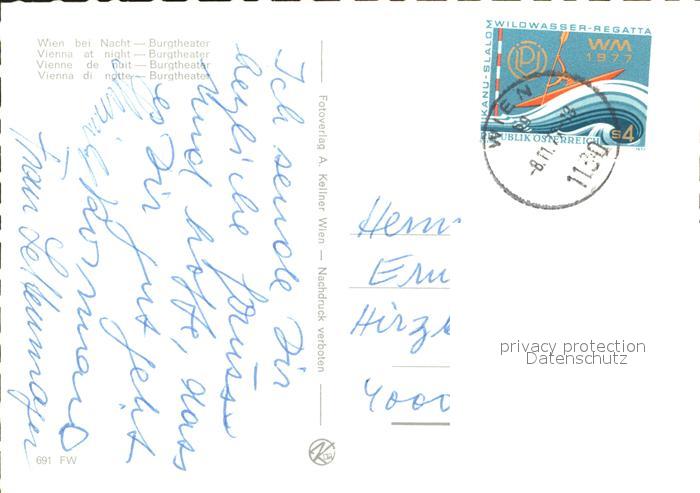 Wien bei Nacht — Burgtheater
Vienna at night — Burgtheater
Vienne de nuit — Burgtheater
Vienna di notte — Burgtheater
Ich sende Dir
herzliche Grüsse
und hoffe, dass
es Dir gut geht
Frau
691 FW
Fotoverlag A. Kellner Wien — Nachdruck verboten
KANU-SLALOM WILDWASSER-REGATTA
WM
1977
REPUBLIK ÖSTERREICH
S4
WIEN
-8.11.
1130
Herrn
Hirz
4000
privacy protection
Datenschutz